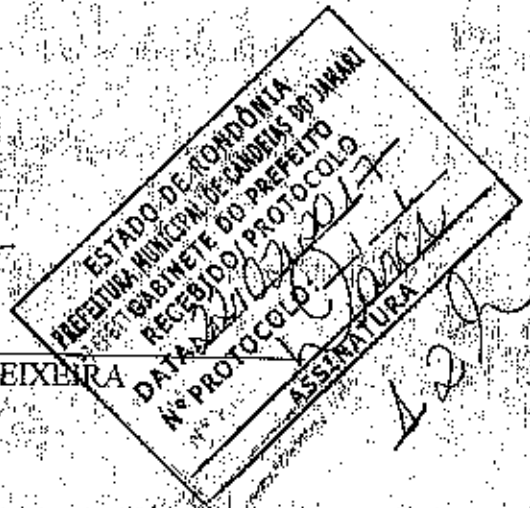 ESTADO DE RONDÔNIA
PREFEITURA MUNICIPAL DE CANDEIAS DO JAMARI
GABINETE DO PREFEITO
RECEBIDO/PROTOCOLO
DATA: 22/03/2017
Nº PROTOCOLO:
ASSINATURA
EIXEIRA